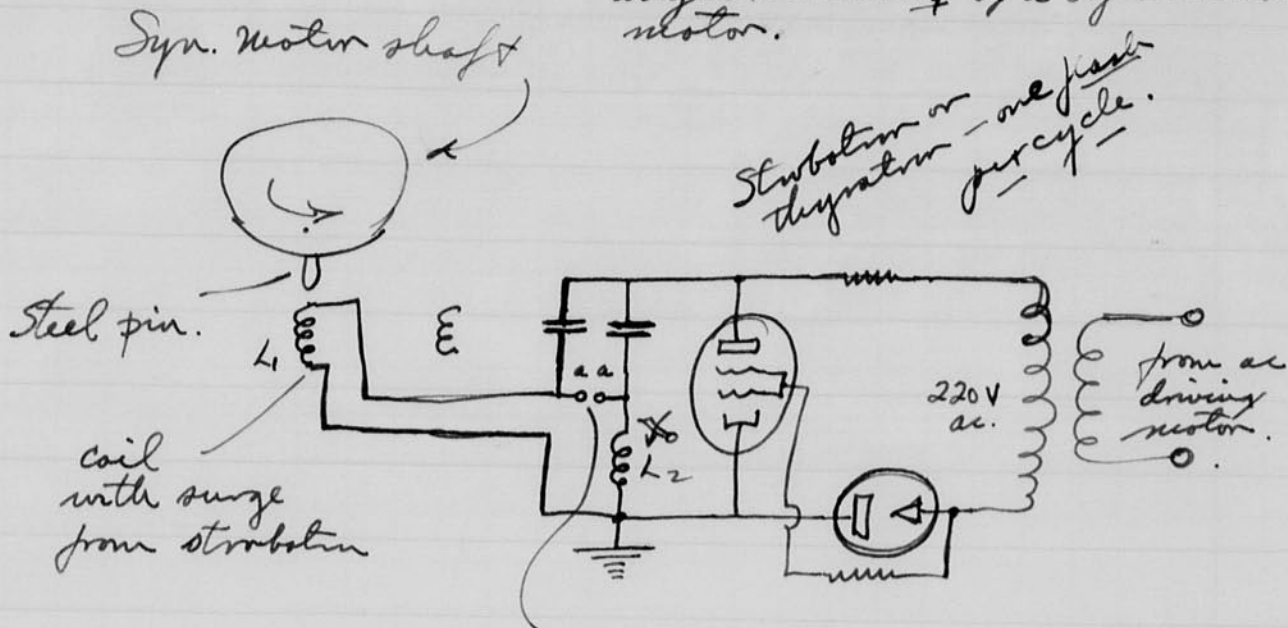 Syn. motor shaft
motor.
Strobotron or
thyratron — one flash
per cycle.
Steel pin.
L1
a a
L2
220 V
ac.
from ac
driving
motor.
coil
with surge
from strobotron